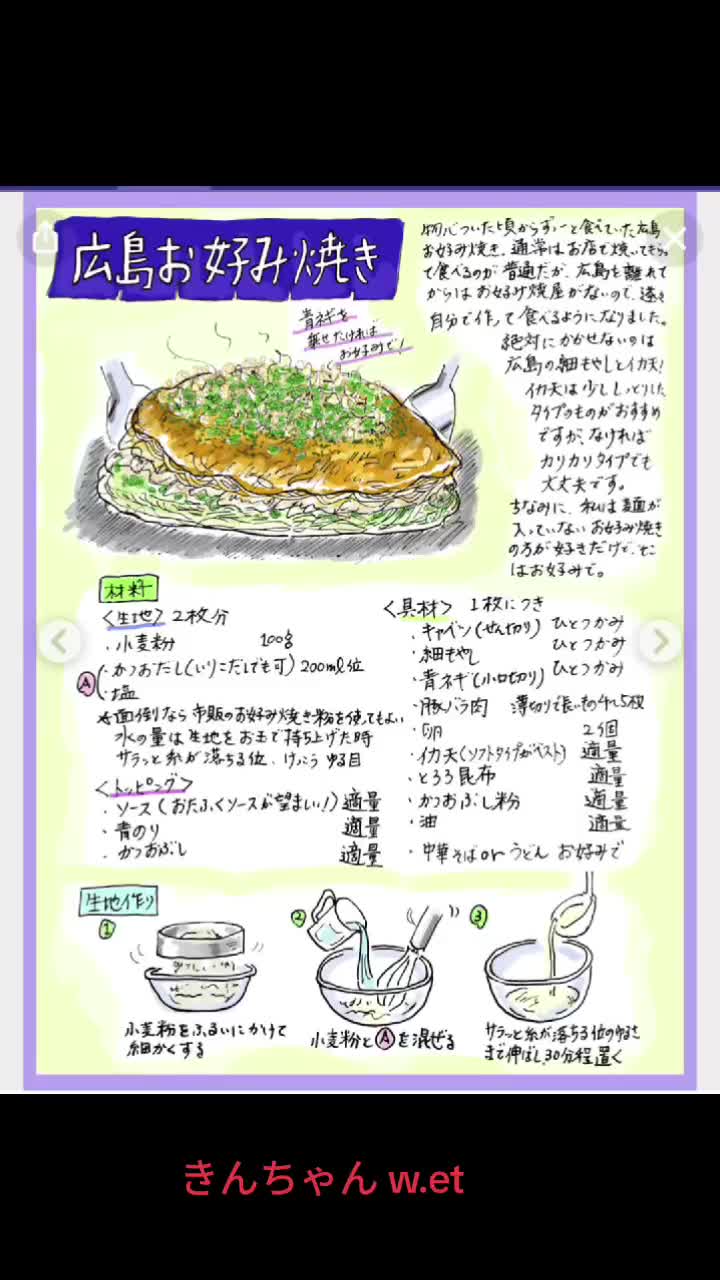 広島お好み焼き
物心ついた頃からずーと食べていた広島
お好み焼き。通常はお店で焼いてもらっ
て食べるのが普通だが、広島を離れて
からはお好み焼屋がないので、
自分で作って食べるようになりました。
絶対にかかせないのは
広島の細もやしとイカ天!
イカ天は少ししっとりした
タイプのものがおすすめ
ですが、なければ
カリカリタイプでも
大丈夫です。
ちなみに、私は麺が
入っていないお好み焼き
の方が好きだけど、そこ
はお好みで。
青ネギを
載せたければ
お好みで!
材料
<生地> 2枚分
・小麦粉 100g
Ⓐ
・かつおだし(いりこだしでも可) 200ml位
・塩
☆面倒なら市販のお好み焼き粉を使ってもよい
水の量は生地をお玉で持ち上げた時
サラッと糸が落ちる位、けっこうゆる目
<トッピング>
・ソース(おたふくソースが望ましい!) 適量
・青のり 適量
・かつおぶし 適量
<具材> 1枚につき
・キャベツ(せん切り) ひとつかみ
・細もやし ひとつかみ
・青ネギ(小口切り) ひとつかみ
・豚バラ肉 薄切りで長いもの4〜5枚
・卵 2個
・イカ天(ソフトタイプがベスト) 適量
・とろろ昆布 適量
・かつおぶし粉 適量
・油 適量
・中華そばorうどん お好みで
生地作り
①
小麦粉をふるいにかけて
細かくする
②
小麦粉とⒶを混ぜる
③
サラッと糸が落ちる位のゆるさ
まで伸ばし、30分程置く
きんちゃん w.et